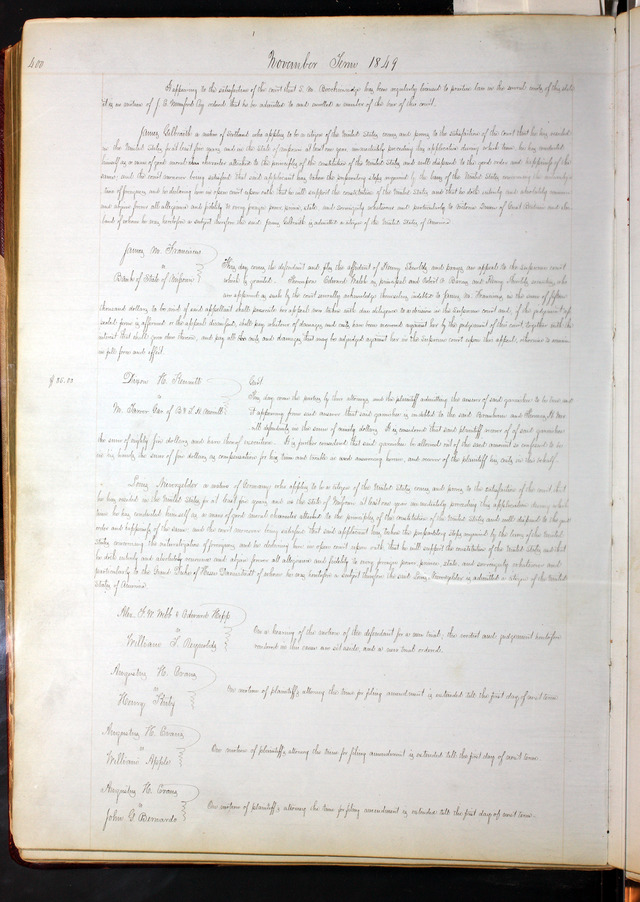 400
November Term 1849
It appearing to the satisfaction of the court that S. M. Breckenridge has been regularly licensed to practice law in the several courts of this state
it is on motion of J. B. Mumford Esq ordered that he be admitted to and enrolled a member of the bar of this court.
James Galbraith a native of Scotland who applies to be a citizen of the United States, comes and proves to the satisfaction of the court that he has resided
in the United States for at least five years and in the State of Missouri at least one year immediately preceding this application during which time, he has conducted
himself as a man of good moral character attached to the principles of the constitution of the United States and well disposed to the good order and happiness of the
same; and the court moreover being satisfied that said applicant has taken the preparatory steps required by the laws of the United States, concerning the naturaliza
tion of foreigners; and he declaring here in open court upon oath that he will support the constitution of the United States, and that he doth entirely and absolutely renounce
and abjure forever all allegiance and fidelity to every foreign power, prince, state, and sovereignty whatsoever and particularly to Victoria Queen of Great Britain and Ire
land of whom he was heretofore a subject therefore the said James Galbraith is admitted a citizen of the United States of America.
James M. Franciscus
vs
Bank of State of Missouri
This day comes the defendant and files the affidavit of Henry and prays an appeal to the supreme court
which is granted. Thereupon Edward Walsh as principal and Robert A. Barnes and Henry securities who
are approved as such by the court severally acknowledge themselves indebted to James M. Franciscus, in the sum of fifteen
thousand dollars, to be void if said appellant shall prosecute his appeal now taken with due diligence to a decision in the supreme court and, if the judgment ap
pealed from is affirmed or the appeal dismissed, shall pay whatever of damages, and costs have been recovered against her by the judgment of this court together with the
interest that shall accrue thereon, and pay all the costs and damages that may be adjudged against her in the supreme court upon this appeal; otherwise to remain
in full force and effect.
$ 86.00
Dixon H.
vs
M. Tarver Gar of B &
This day come the parties by their attorneys, and the plaintiff admitting the answer of said garnishee to be true and
it appearing from said answer that said garnishee is indebted to the said
defendants in the sum of ninety dollars. It is considered that said plaintiff recover of said garnishee
the sum of eighty five dollars, and have thereof execution. It is further considered that said garnishee be allowed out of the amount so confessed to be
in his hands, the sum of five dollars as compensation for his time and trouble in and answering herein, and recover of the plaintiff his costs in this behalf.
Louis a native of Germany who applies to be a citizen of the United States, comes and proves to the satisfaction of the court that
he has resided in the United States for at least five years and in the State of Missouri at least one year immediately preceding this application during which
time he has conducted himself as a man of good moral character attached to the principles of the constitution of the United States and well disposed to the good
order and happiness of the same; and the court moreover being satisfied that said applicant has taken the preparatory steps required by the laws of the United
States, concerning the naturalization of foreigners, and he declaring here in open court upon oath that he will support the constitution of the United States and that
he doth entirely and absolutely renounce and abjure forever all allegiance and fidelity to every foreign power, prince, state, and sovereignty whatsoever and
particularly to the Grand Duke of Hesse Darmstadt of whom he was heretofore a subject therefore the said Louis is admitted a citizen of the United
States of America.
Alex. F. W. Webb & Edward Hepp
vs
William T. Reynolds
On a hearing of the motion of the defendant for a new trial; the verdict and judgement heretofore
rendered in this cause are set aside, and a new trial ordered.
Augustus H. Evans
vs
Henry
On motion of plaintiff's attorney the time for filing amendment is extended till the first day of next term
Augustus H. Evans
vs
William Apple
On motion of plaintiff's attorney the time for filing amendment is extended till the first day of next term.
Augustus H. Evans
vs
John G Bernardo
On motion of plaintiff's attorney the time for filing amendment is extended till the first day of next term.